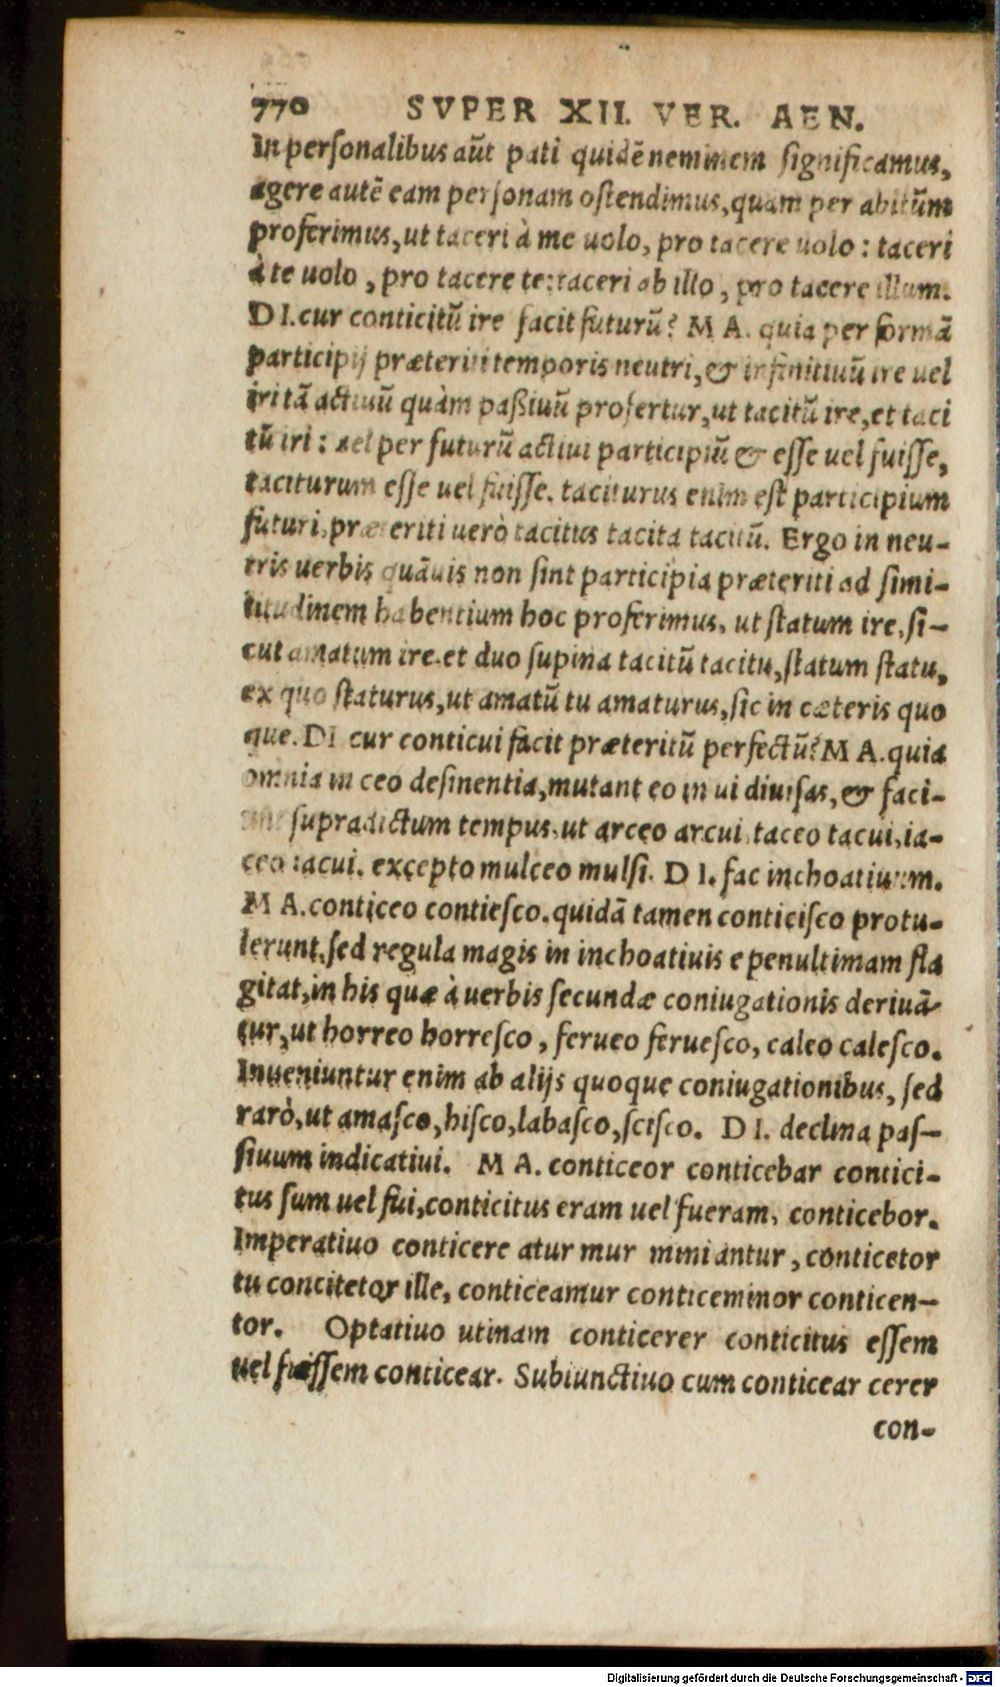 770 SVPER XII. VER. AEN.
Inpersonalibus aūt pati quidē neminem significamus,
agere autē eam personam ostendimus, quam per abitūm
proferimus, ut taceri à me uolo, pro tacere uolo: taceri
à te uolo, pro tacere te: taceri ab illo, pro tacere illum.
DI. cur conticitū ire facit futurū? MA. quia per formā
participij præteriti temporis neutri, & infinitiuū ire uel
iri tā actiuū quàm paßiuū profertur, ut tacitū ire, et taci
tū iri: uel per futurū actiui participiū & esse uel fuisse,
taciturum esse uel fuisse. taciturus enim est participium
futuri, præteriti uerò tacitus tacita tacitū. Ergo in neu-
tris uerbis quāuis non sint participia præteriti ad simi-
litudinem habentium hoc proferimus, ut statum ire, si-
cut amatum ire. et duo supina tacitū tacitu, statum statu,
ex quo staturus, ut amatū tu amaturus, sic in cæteris quo
que. DI cur conticui facit præteritū perfectū? MA. quia
omnia in ceo desinentia, mutant eo in ui diuisas, & faci-
unt supradictum tempus, ut arceo arcui, taceo tacui, ia-
ceo iacui. excepto mulceo mulsi. DI. fac inchoatiuum.
MA. conticeo contiesco. quidā tamen conticisco protu-
lerunt, sed regula magis in inchoatiuis e penultimam fla
gitat, in his quæ à uerbis secundæ coniugationis deriuā-
tur, ut horreo horresco, ferueo feruesco, caleo calesco.
Inueniuntur enim ab alijs quoque coniugationibus, sed
rarò, ut amasco, hisco, labasco, scisco. DI. declina pas-
siuum indicatiui. MA. conticeor conticebar contici-
tus sum uel fui, conticitus eram uel fueram, conticebor.
Imperatiuo conticere atur mur mini antur, conticetor
tu concitetor ille, conticeamur conticeminor conticen-
tor. Optatiuo utinam conticerer conticitus essem
uel fuissem conticear. Subiunctiuo cum conticear cerer
con-
Digitalisierung gefördert durch die Deutsche Forschungsgemeinschaft - DFG